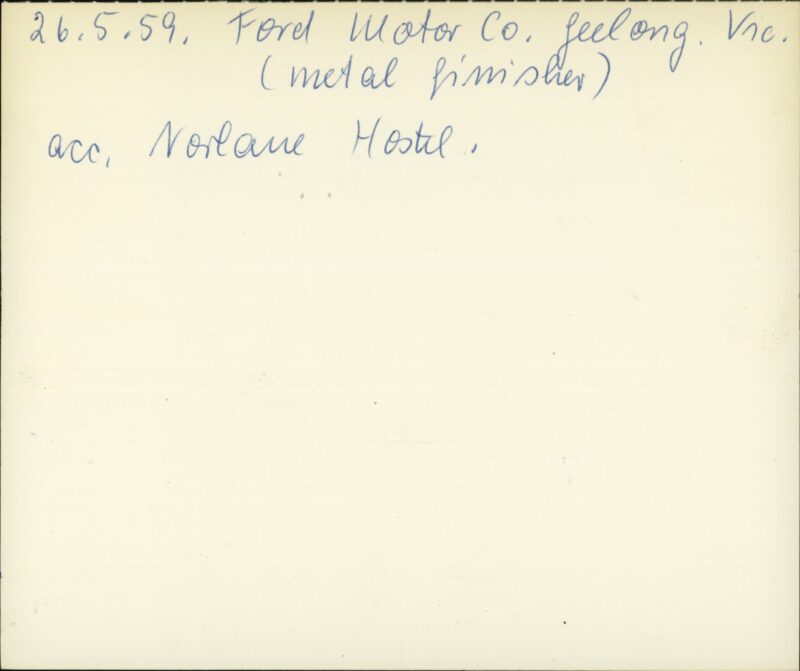 26.5.59. Ford Motor Co. Geelong. Vic.
(metal finisher)
acc. Norlane Hostel.